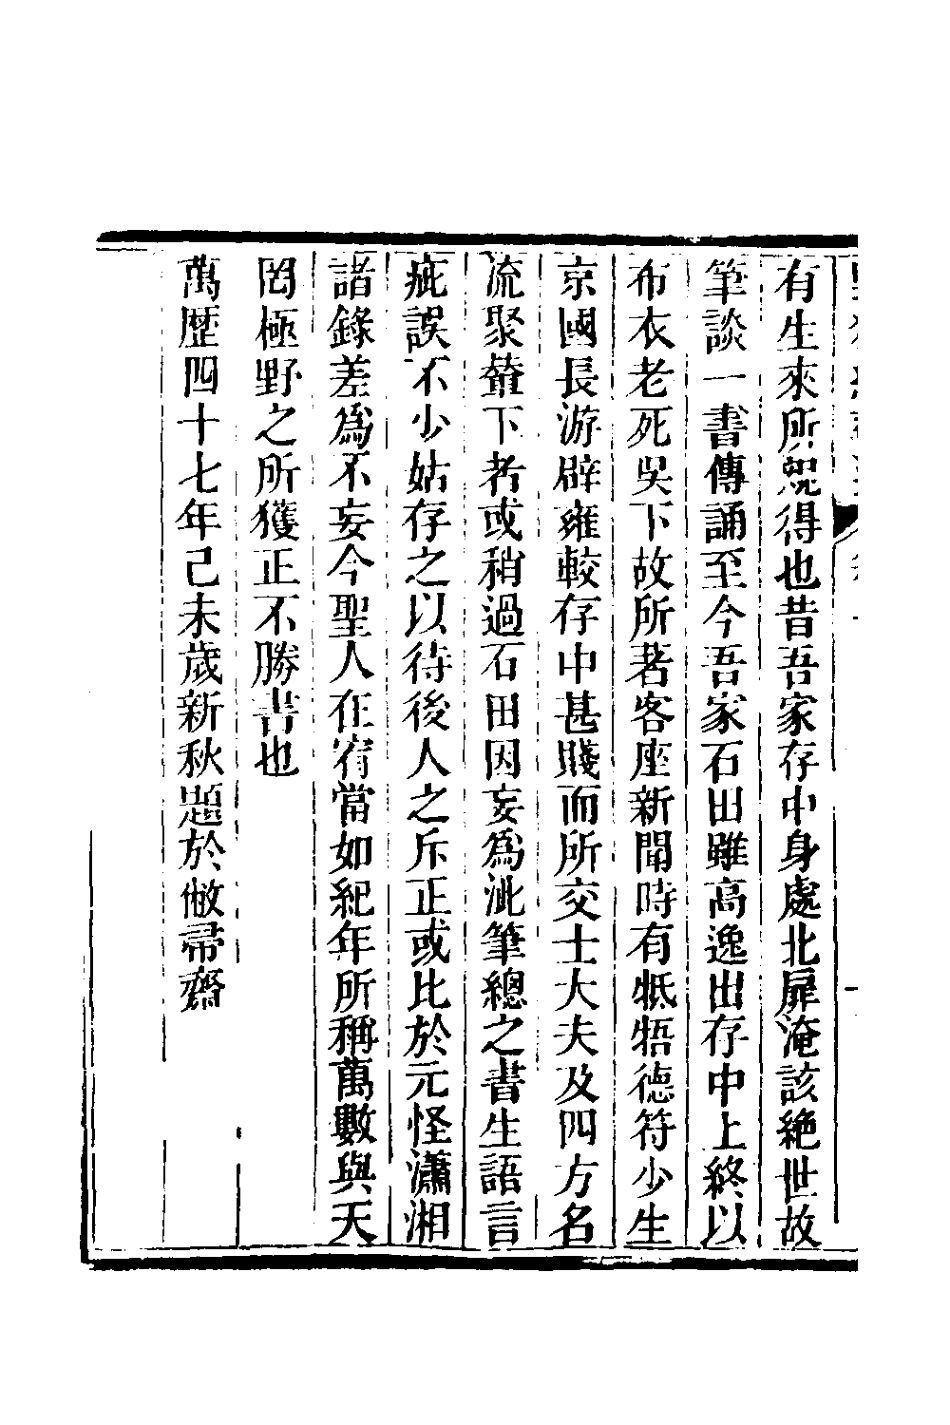 有生來所覩得也昔吾家存中身處北扉淹該絶世故
筆談一書傳誦至今吾家石田雖高逸出存中上終以
布衣老死吳下故所著客座新聞時有牴牾德符少生
京國長游辟雍較存中甚賤而所交士大夫及四方名
流聚輦下者或稍過石田因妄爲泚筆總之書生語言
疵誤不少姑存之以待後人之斥正或比於元怪瀟湘
諸錄差爲不妄今聖人在宥當如紀年所稱萬數與天
罔極野之所獲正不勝書也
萬歷四十七年己未歲新秋題於敝帚齋